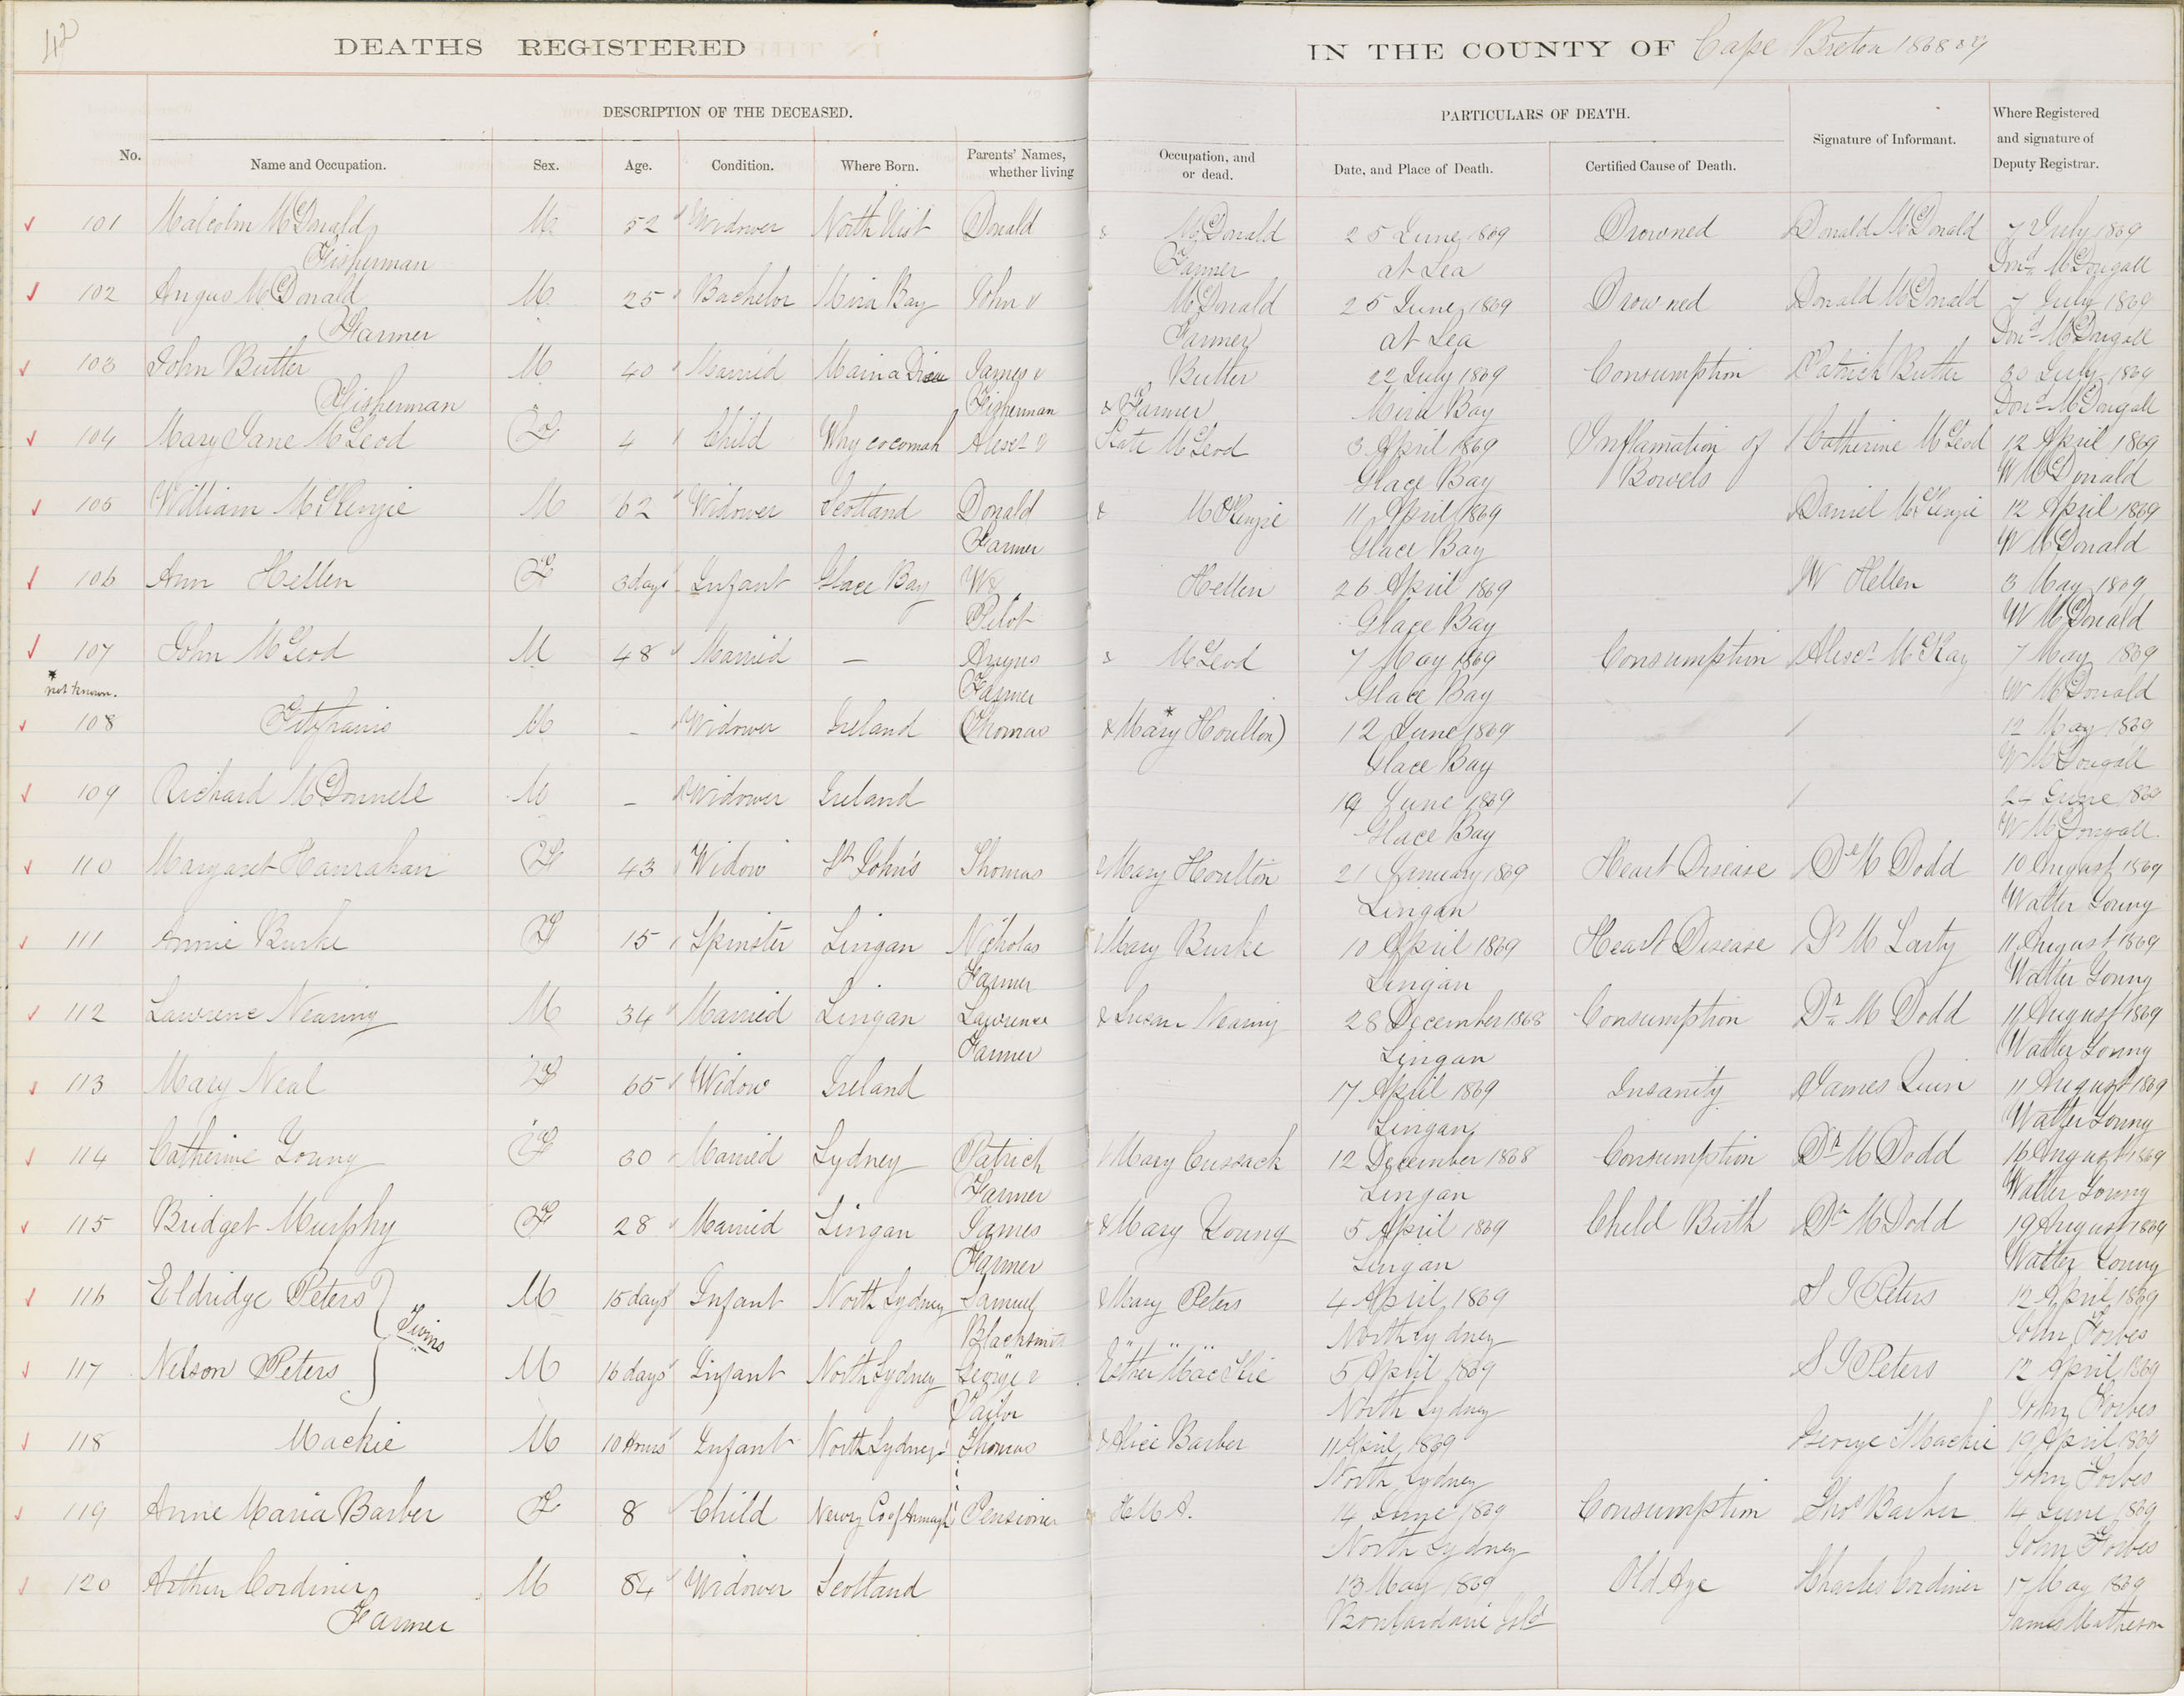 42
DEATHS REGISTERED IN THE COUNTY OF Cape Breton 1868
DESCRIPTION OF THE DECEASED. PARTICULARS OF DEATH.
No. Name and Occupation. Sex. Age. Condition. Where Born. Parents' Names, whether living Occupation, and or dead. Date, and Place of Death. Certified Cause of Death. Signature of Informant. Where Registered and signature of Deputy Registrar.
101 Malcolm McDonald M 52 Widower North Uist Donald & McDonald 25 June 1869 Drowned Donald McDonald 7 July 1869
Fisherman Farmer at Sea Dond. McDougall
102 Angus McDonald M 25 Bachelor Mira Bay John & McDonald 25 June 1869 Drowned Donald McDonald 7 July 1869
Farmer Farmer at Sea Dond. McDougall
103 John Butler M 40 Married Main a Dieu James & Butler 22 July 1869 Consumption Patrick Butler 30 July 1869
Fisherman Fisherman & Farmer Mira Bay Dond. McDougall
104 Mary Jane McLeod F 4 Child Whycocomah Alexr & Kate McLeod 3 April 1869 Inflamation of Catherine McLeod 12 April 1869
Glace Bay Bowels W McDonald
105 William McKenzie M 62 Widower Scotland Donald & McKenzie 11 April 1869 Daniel McKenzie 12 April 1869
Farmer Glace Bay W McDonald
106 Ann Hellen F 3 days Infant Glace Bay Wm Hellen 26 April 1869 W Hellen 3 May 1869
Pilot Glace Bay W McDonald
107 John McLeod M 48 Married — Angus & McLeod 7 May 1869 Consumption Alexr McKay 7 May 1869
* not known. Farmer Glace Bay W McDonald
108 M - Widower Ireland Thomas & Mary * Houlton) 12 June 1869 12 May 1869
Glace Bay W McDougall
109 Richard McDonnell M - Widower Ireland 19 June 1869 24 June 1869
Glace Bay W McDougall
110 Margaret Hanrahan F 43 Widow St John's Thomas & Mary Houlton 21 January 1869 Heart Disease Dr M Dodd 10 August 1869
Lingan Walter Young
111 Annie Burke F 15 Spinster Lingan Nicholas & Mary Burke 10 April 1869 Heart Disease Dr M Larty 11 August 1869
Farmer Lingan Walter Young
112 Lawrence Nearing M 34 Married Lingan Lawrence & Susan Nearing 28 December 1868 Consumption Dr M Dodd 11 August 1869
Farmer Lingan Walter Young
113 Mary Neal F 65 Widow Ireland 17 April 1869 Insanity James Quin 11 August 1869
Lingan Walter Young
114 Catherine Young F 30 Married Sydney Patrick & Mary Cussack 12 December 1868 Consumption Dr M Dodd 16 August 1869
Farmer Lingan Walter Young
115 Bridget Murphy F 28 Married Lingan James & Mary Young 5 April 1869 Child Birth Dr M Dodd 19 August 1869
Farmer Lingan Walter Young
116 Eldridge Peters M 15 days Infant North Sydney Samuel & Mary Peters 4 April 1869 S I Peters 12 April 1869
Twins Blacksmith " " " North Sydney John Forbes
117 Nelson Peters M 16 days Infant North Sydney George & Esther MacKie 5 April 1869 S I Peters 12 April 1869
Tailor North Sydney John Forbes
118 Mackie M 10 Hours Infant North Sydney Thomas & Alice Barber 11 April 1869 George Mackie 19 April 1869
North Sydney John Forbes
119 Annie Maria Barber F 8 Child Newry Co of Armagh Pensioner H M A. 14 June 1869 Consumption Thos Barber 14 June 1869
North Sydney John Forbes
120 Arthur Cordiner M 84 Widower Scotland 13 May 1869 Old Age Charles Cordiner 17 May 1869
Farmer Boulardarie Isld James Matheson